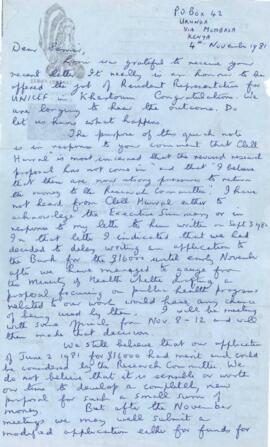 P.O. Box 42
Ukunda
Via Mombasa
Kenya
4th November 1981
Dear
I was grateful to receive your
recent letter. It really is an honour to be
offered the job of Resident Representative for
UNICEF in Khartoum. Congratulations we
are longing to hear the outcome. Do
let us know what happens.
The purpose of this quick note
is in response to your comment that Cliff
is most concerned that the revised research
proposal has not come in and that I believe
that there are now strong pressures to return
the money to the Research Committee. I have
not heard from Cliff either to
acknowledge the Executive Summary or in
response to my letter to him written on Sept 3 1981
In that letter I indicated that we had
decided to delay writing an application to
the Bank for the $16000 until early November
after we have managed to gauge from
the Ministry of Health whether a
proposal focused on public health programs
related to our work would have any chance
of being used by them. I will be meeting
with some officials from Nov. 8-12 and will
then made that decision.
We still believe that our application
of June 2 1981 for $16000 had merit and could
be considered by the Research Committee. We
do not believe that it is sensible or worth
our time to develop a completely new
proposal for such a small sum of
money. But after the November
meetings we may well submit a
modified application either for funds for